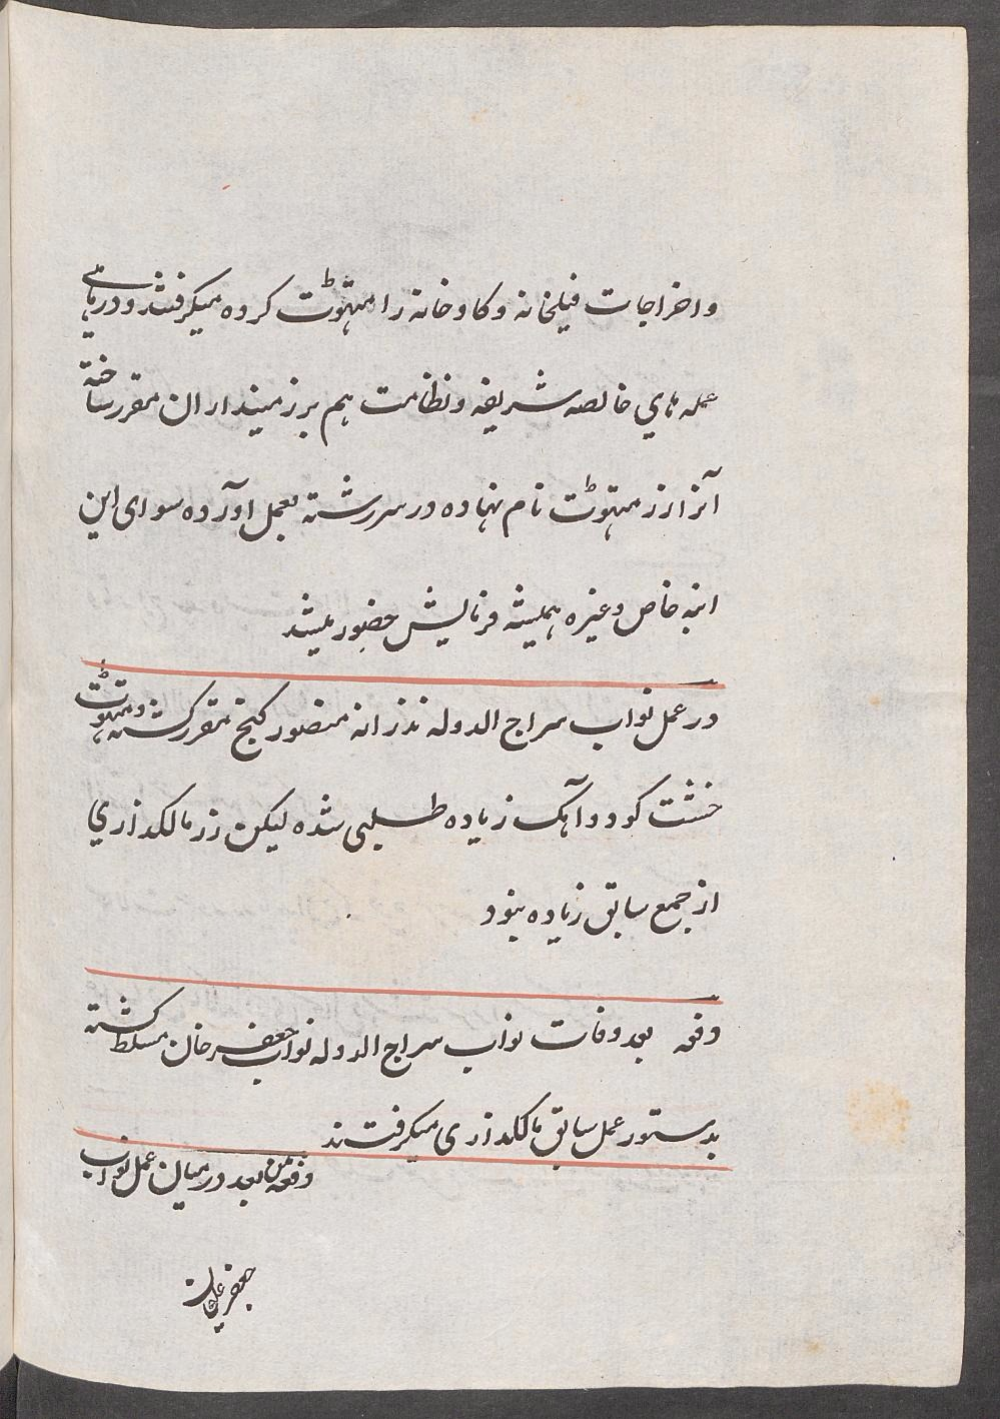 و اخراجات فیلخانه و کاوخانه را متهوٹ کرده میکرفتند و درماهے
عمله هاي خالصه شریفه و نظامت هم بر زمینداران مقرر ساخته
آنرا زر متهوٹ نام نهاده در سررشته بعمل آورده سوای این
انبه خاص وغیره همیشه فرمایش حضور میشد
در عمل نواب سراج الدوله نذرانه منصور کنج مقرر کشته و متهوٹ
خشت کور و آهک زیاده طلبی شده لیکن زر مالکذاري
از جمع سابق زیاده نبود
دفعه بعد وفات نواب سراج الدوله نواب جعفر خان مسلط کشته
بدستور عمل سابق مالکذاری میکرفتند
دفعه من بعد در میان عمل نواب
جعفر علیخان